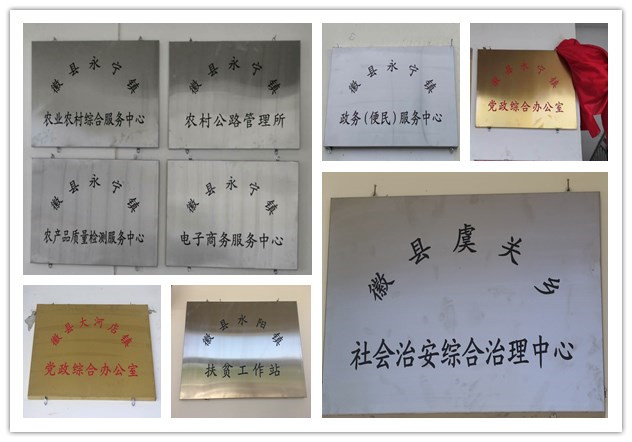 徽县永宁镇
农业农村综合服务中心
徽县永宁镇
农村公路管理所
徽县永宁镇
农产品质量检测服务中心
徽县永宁镇
电子商务服务中心
徽县永宁镇
政务(便民)服务中心
徽县永宁镇
党政综合办公室
徽县大河店镇
党政综合办公室
徽县水阳镇
扶贫工作站
徽县虞关乡
社会治安综合治理中心